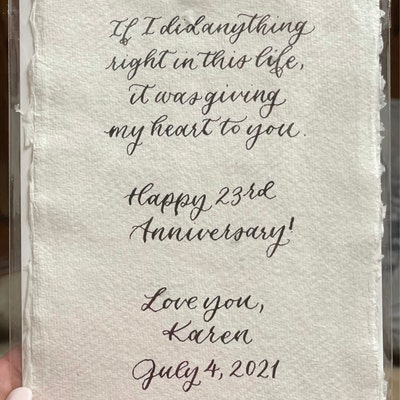 If I did anything
right in this life,
it was giving
my heart to you.
Happy 23rd
Anniversary!
Love you,
Karen
July 4, 2021